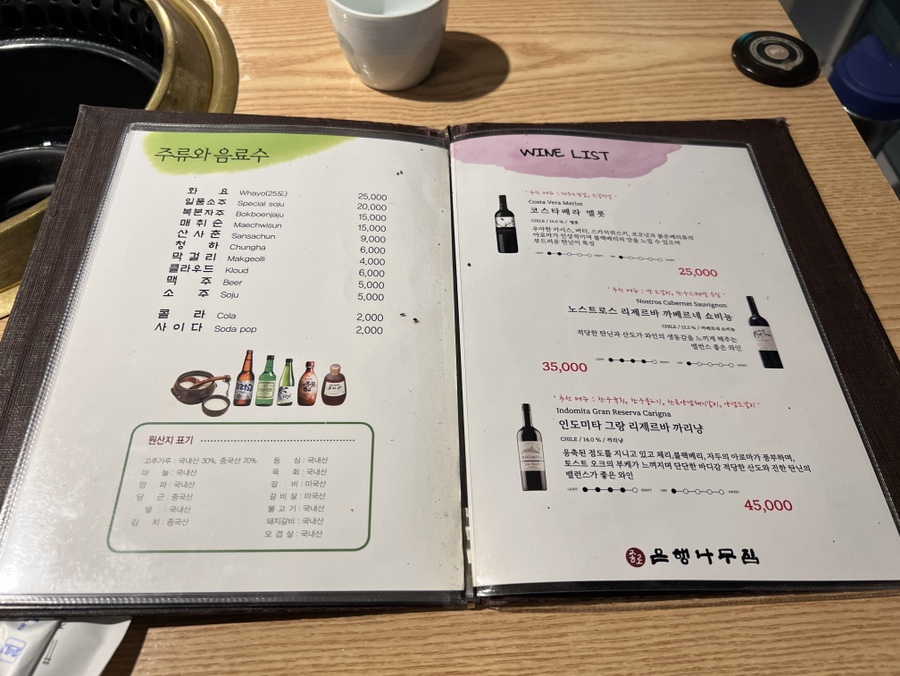 주류와 음료수
화 요 Whayo(25도) 25,000
일품소주 Special soju 20,000
복분자주 Bokboenjaju 15,000
매 취 순 Maechwisun 15,000
산 사 춘 Sansachun 9,000
청 하 Chungha 6,000
막 걸 리 Makgeolli 4,000
클라우드 Kloud 6,000
맥 주 Beer 5,000
소 주 Soju 5,000
콜 라 Cola 2,000
사 이 다 Soda pop 2,000
원산지 표기
고추가루 : 국내산 30%, 중국산 70%
마 늘 : 국내산
양 파 : 국내산
당 근 : 중국산
쌀 : 국내산
김 치 : 중국산
등 심 : 국내산
육 회 : 국내산
갈 비 : 미국산
갈 비 살 : 미국산
불 고 기 : 국내산
돼지갈비 : 국내산
오 겹 살 : 국내산
WINE LIST
Costa Vera Merlot
코스타베라 멜롯
CHILE / 13.0 % / 멜롯
우아한 카시스, 버터, 스카치위스키, 코코넛과 붉은베리류의
아로마가 인상적이며 블랙베리의 맛을 느낄 수 있으며
부드러운 탄닌이 특징
25,000
Nostros Cabernet Sauvignon
노스트로스 리제르바 까베르네 쇼비뇽
CHILE / 13.5 % / 까베르네 쇼비뇽
적당한 탄닌과 산도가 와인의 생동감을 느끼게 해주는
밸런스 좋은 와인
LIGHT HEAVY DRY SWEET
35,000
Indomita Gran Reserva Carigna
인도미타 그랑 리제르바 까리냥
CHILE / 14.0 % / 까리냥
응축된 점도를 지니고 있고 체리,블랙베리, 자두의 아로마가 풍부하며,
토스트 오크의 부케가 느껴지며 단단한 바디감 적당한 산도와 진한 탄닌의
밸런스가 좋은 와인
LIGHT HEAVY DRY SWEET
45,000
종로 은행나무집